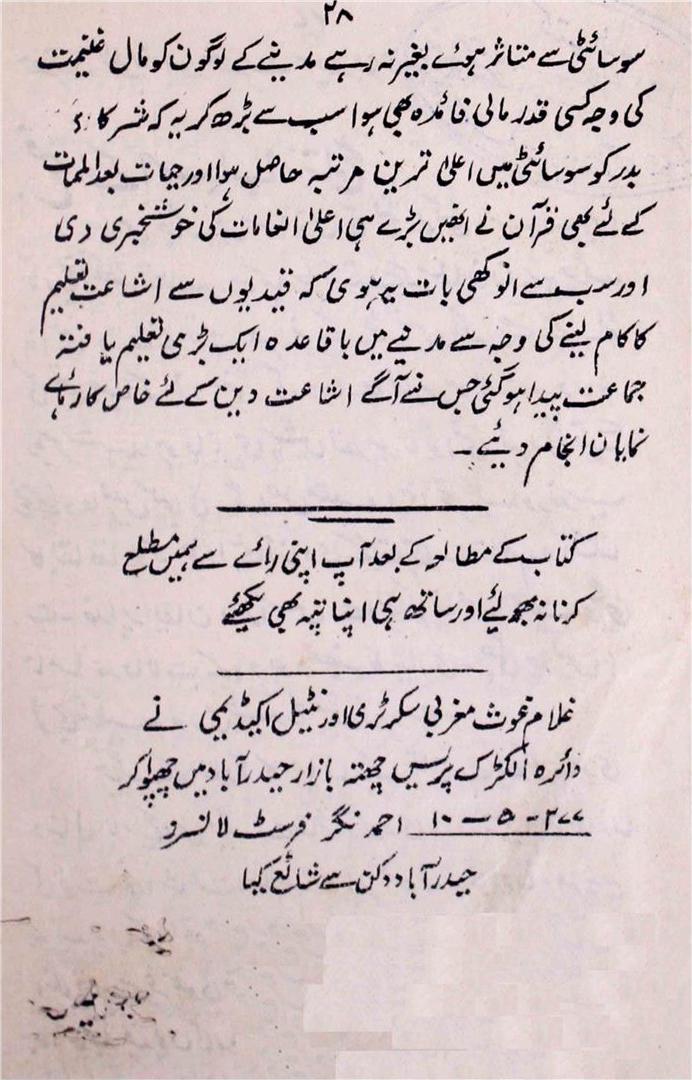 ۲۸
سوسائٹی سے متاثر ہوئے بغیر نہ رہے مدینے کے لوگون کو مال غنیمت
کی وجہ کسی قدر مالی فائدہ بھی ہوا سب سے بڑھ کر یہ کہ شرکائے
بدر کو سوسائٹی میں اعلیٰ ترین مرتبہ حاصل ہوا اور حیات بعد الممات
کے لئے بھی قرآن نے انھیں بڑے ہی اعلیٰ انعامات کی خوشخبری دی
اور سب سے انوکھی بات یہ ہوی کہ قیدیوں سے اشاعت تعلیم
کا کام لینے کی وجہ سے مدینے میں باقاعدہ ایک بڑی تعلیم یافتہ
جماعت پیدا ہوگئی جس نے آگے اشاعت دین کے لئے خاص کارہائے
نمایان انجام دیئے۔
کتاب کے مطالعہ کے بعد آپ اپنی رائے سے ہمیں مطلع
کرنا نہ بھولئے اور ساتھ ہی اپنا پتہ بھی لکھئے
غلام غوث مغربی سکرٹری اورنٹیل اکیڈیمی نے
دائرہ الکٹرک پریس چھتہ بازار حیدرآباد میں چھپوا کر
۲۷۷-۵-۱۰ احمد نگر فرسٹ لانسرو
حیدرآباد دکن سے شائع کیا